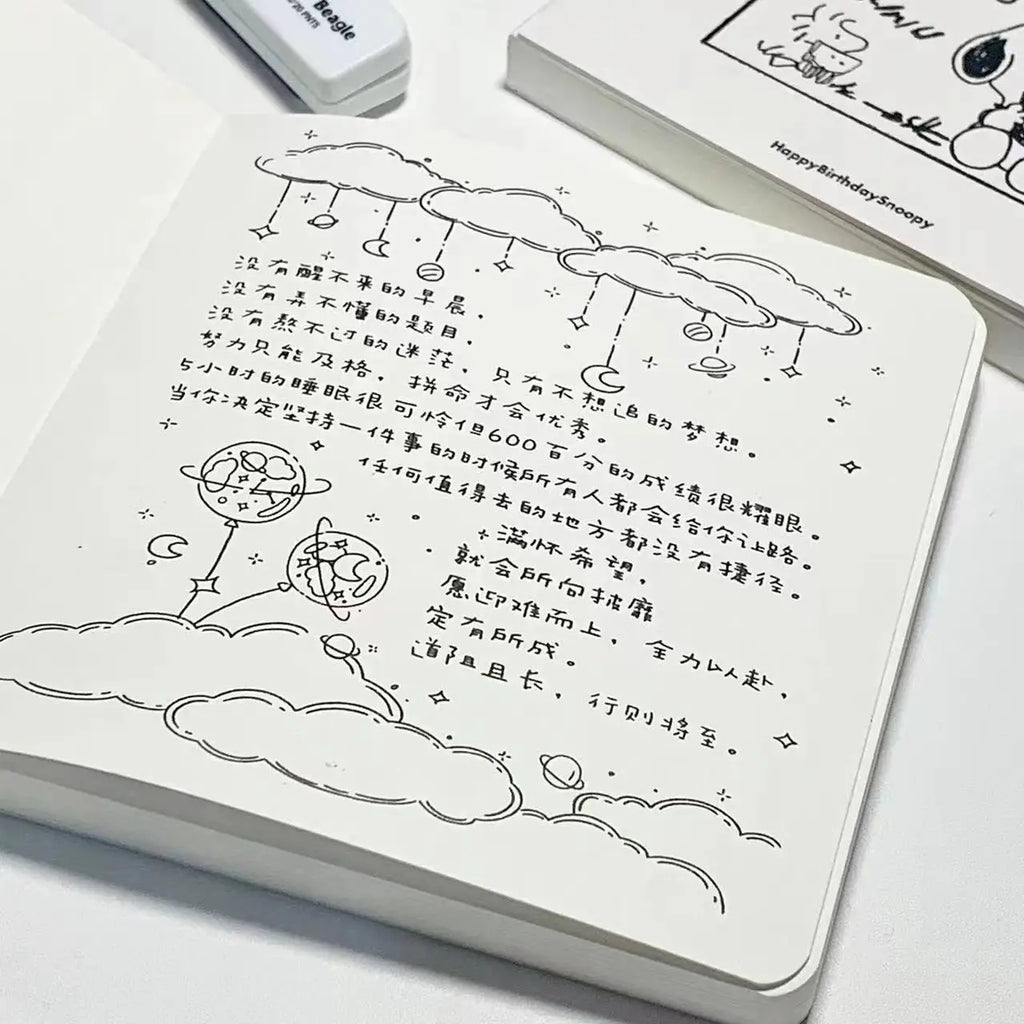 Beagle
HappyBirthdaySnoopy
没有醒不来的早晨，
没有弄不懂的题目，
没有熬不过的迷茫，只有不想追的梦想。
努力只能及格，拼命才会优秀。
5小时的睡眠很可怜但600百分的成绩很耀眼。
当你决定坚持一件事的时候所有人都会给你让路。
任何值得去的地方都没有捷径。
满怀希望，
就会所向披靡
愿迎难而上，全力以赴，
定有所成。
道阻且长，行则将至。